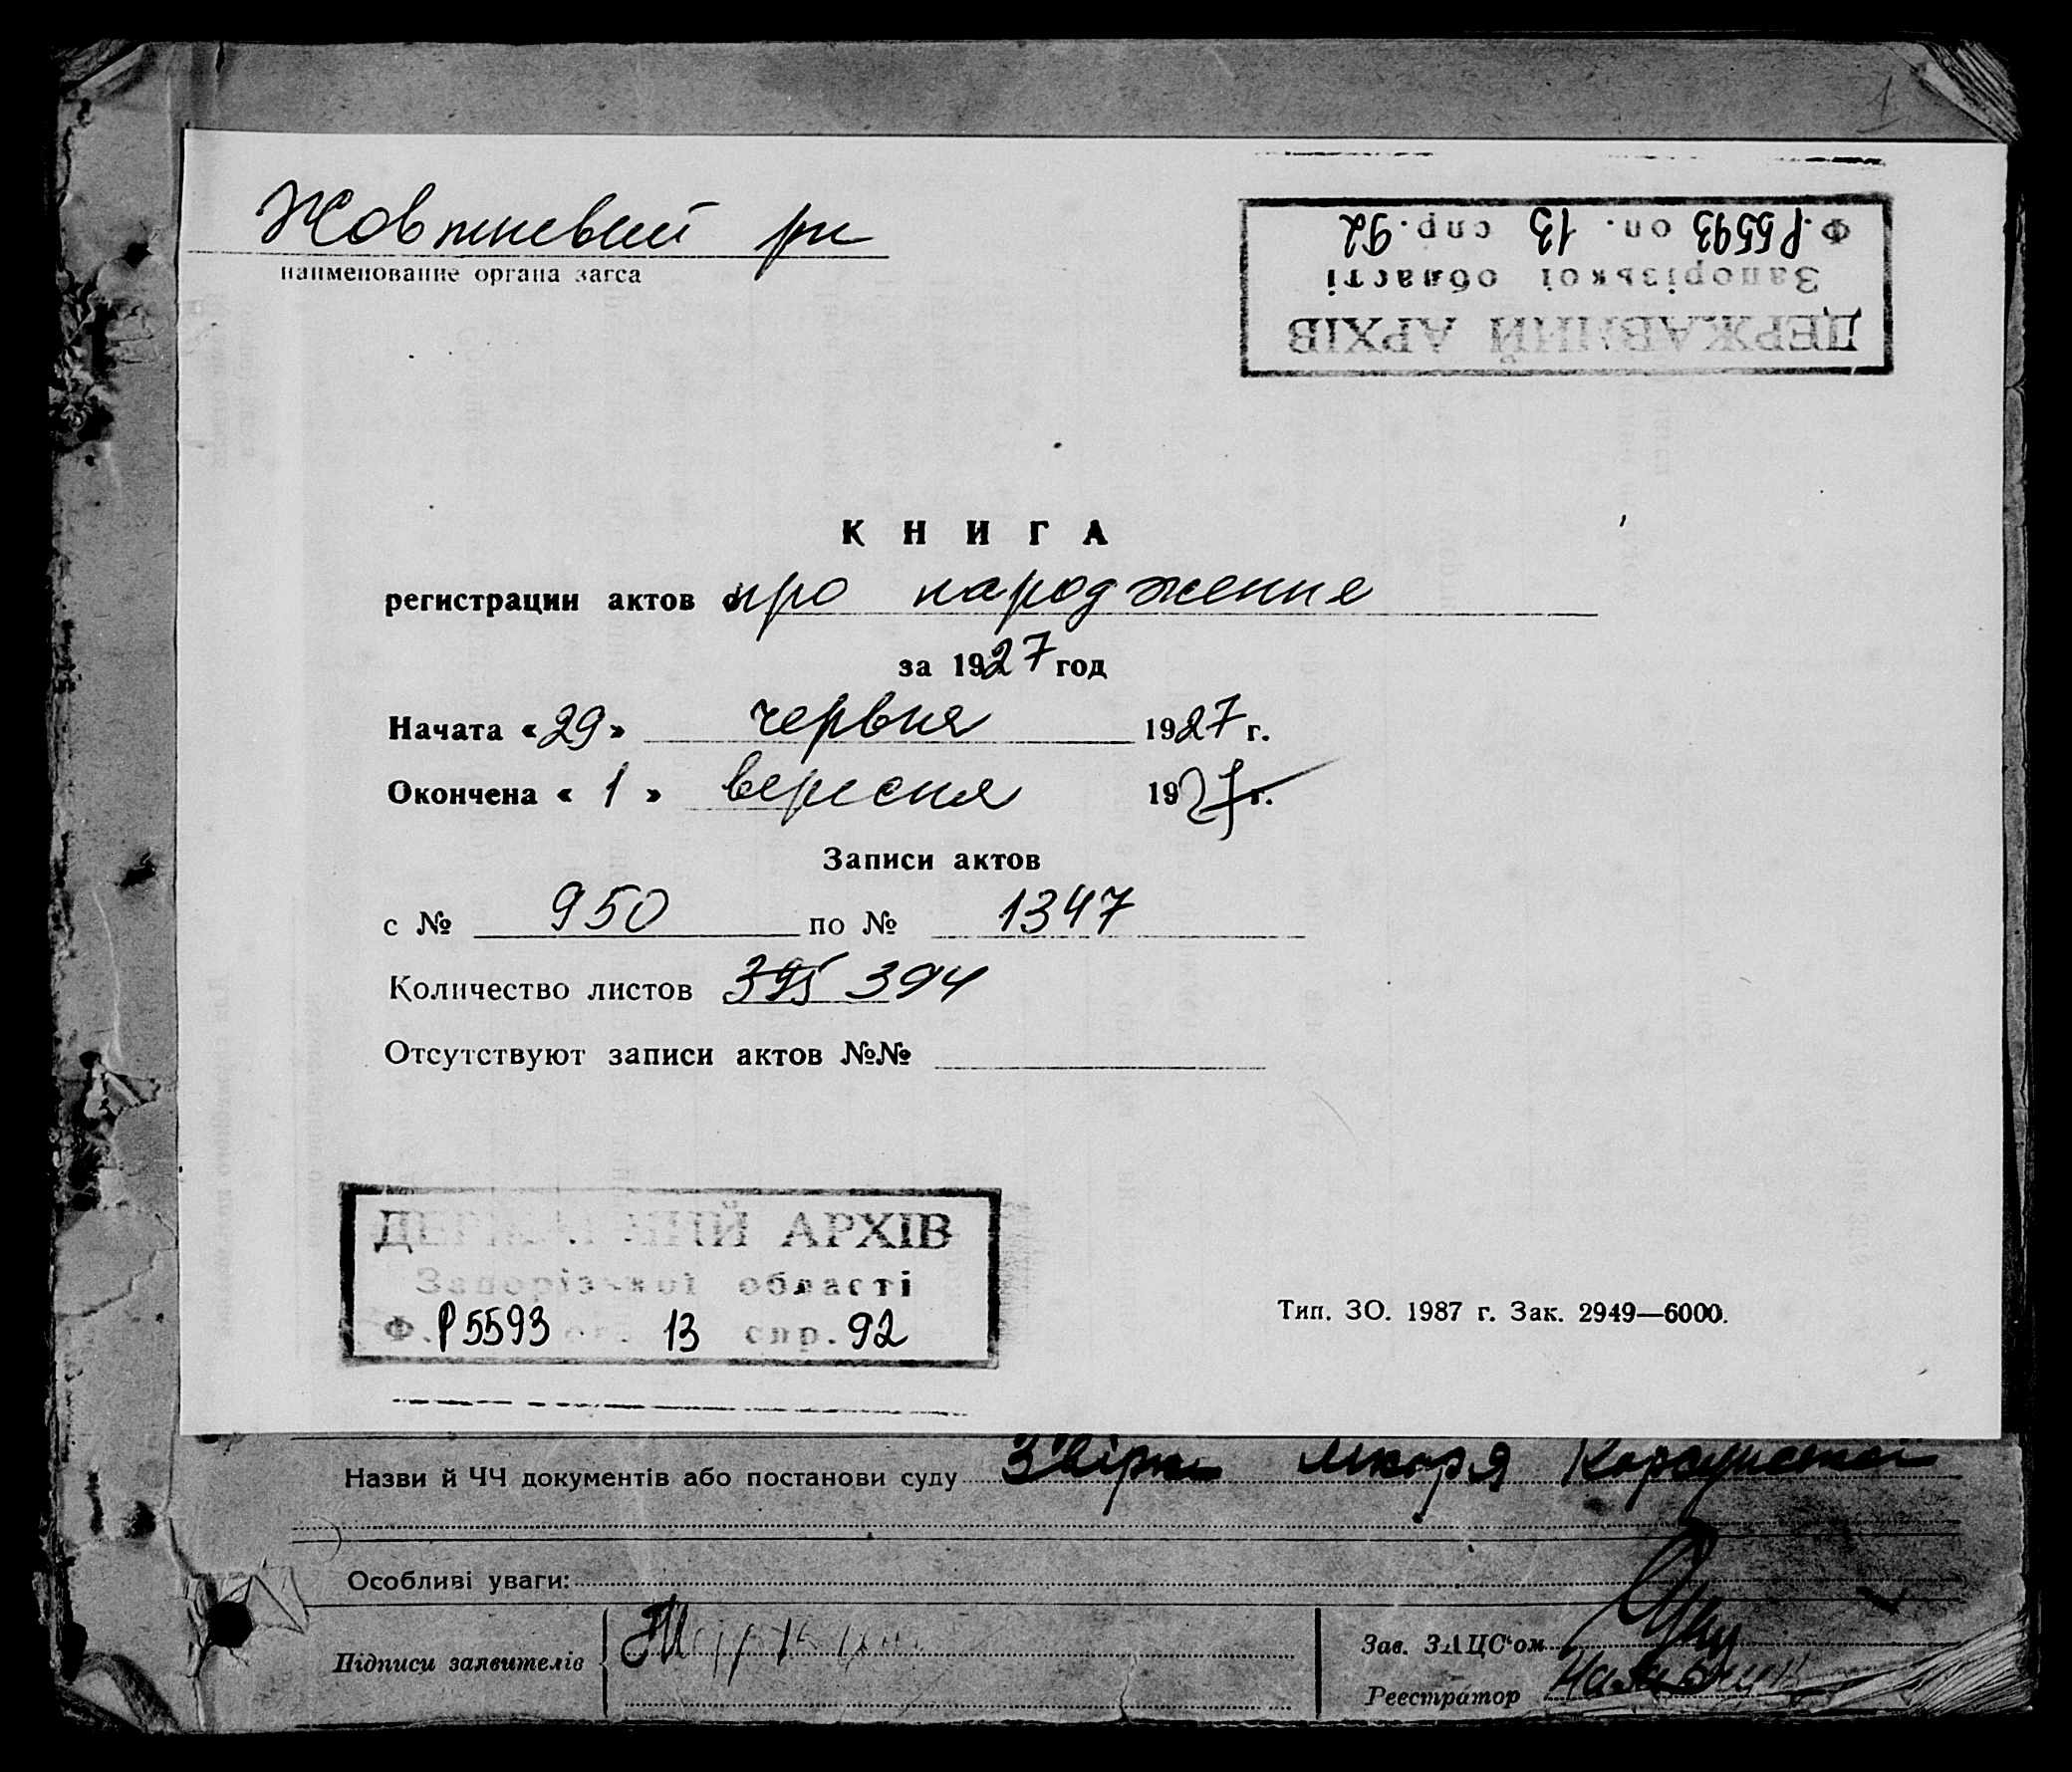 1
Жовтневий рн
наименование органа загса
Ф. Р5593 оп. 13 спр. 92
Запорізької області
ДЕРЖАВНИЙ АРХІВ
КНИГА
регистрации актов о про народження
за 1927 год
Начата «29» червня 1927 г.
Окончена «1» вересня 1927 г.
Записи актов
с № 950 по № 1347
Количество листов 395 394
Отсутствуют записи актов №№
ДЕРЖАВНИЙ АРХІВ
Запорізької області
Ф. Р5593 оп. 13 спр. 92
Тип. ЗО. 1987 г. Зак. 2949—6000.
Назви й ЧЧ документів або постанови суду лікаря
Особливі уваги:
Підписи заявителів
Зав. ЗАЦС'ом
Реєстратор